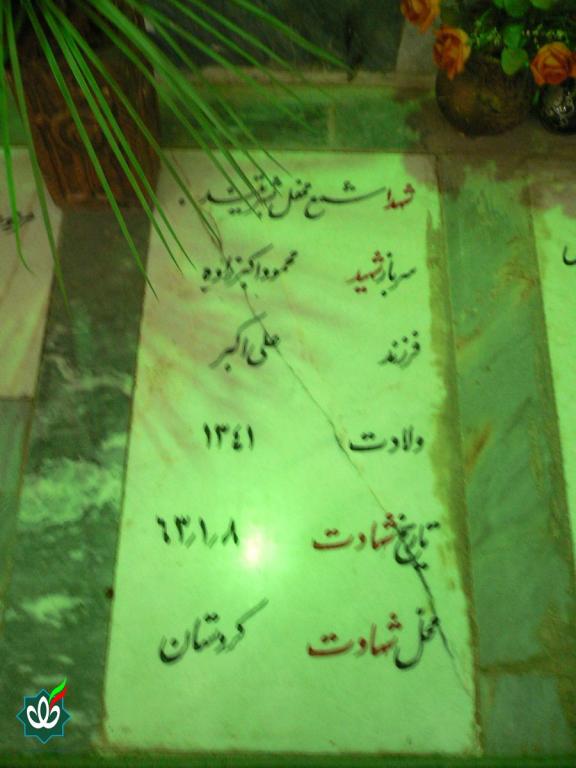 شهدا شمع محفل بشریتند
سرباز شهید محمود اکبرزاده
فرزند علی اکبر
ولادت ۱۳٤۱
تاریخ شهادت ٦۳٫۱٫۸
محل شهادت کردستان